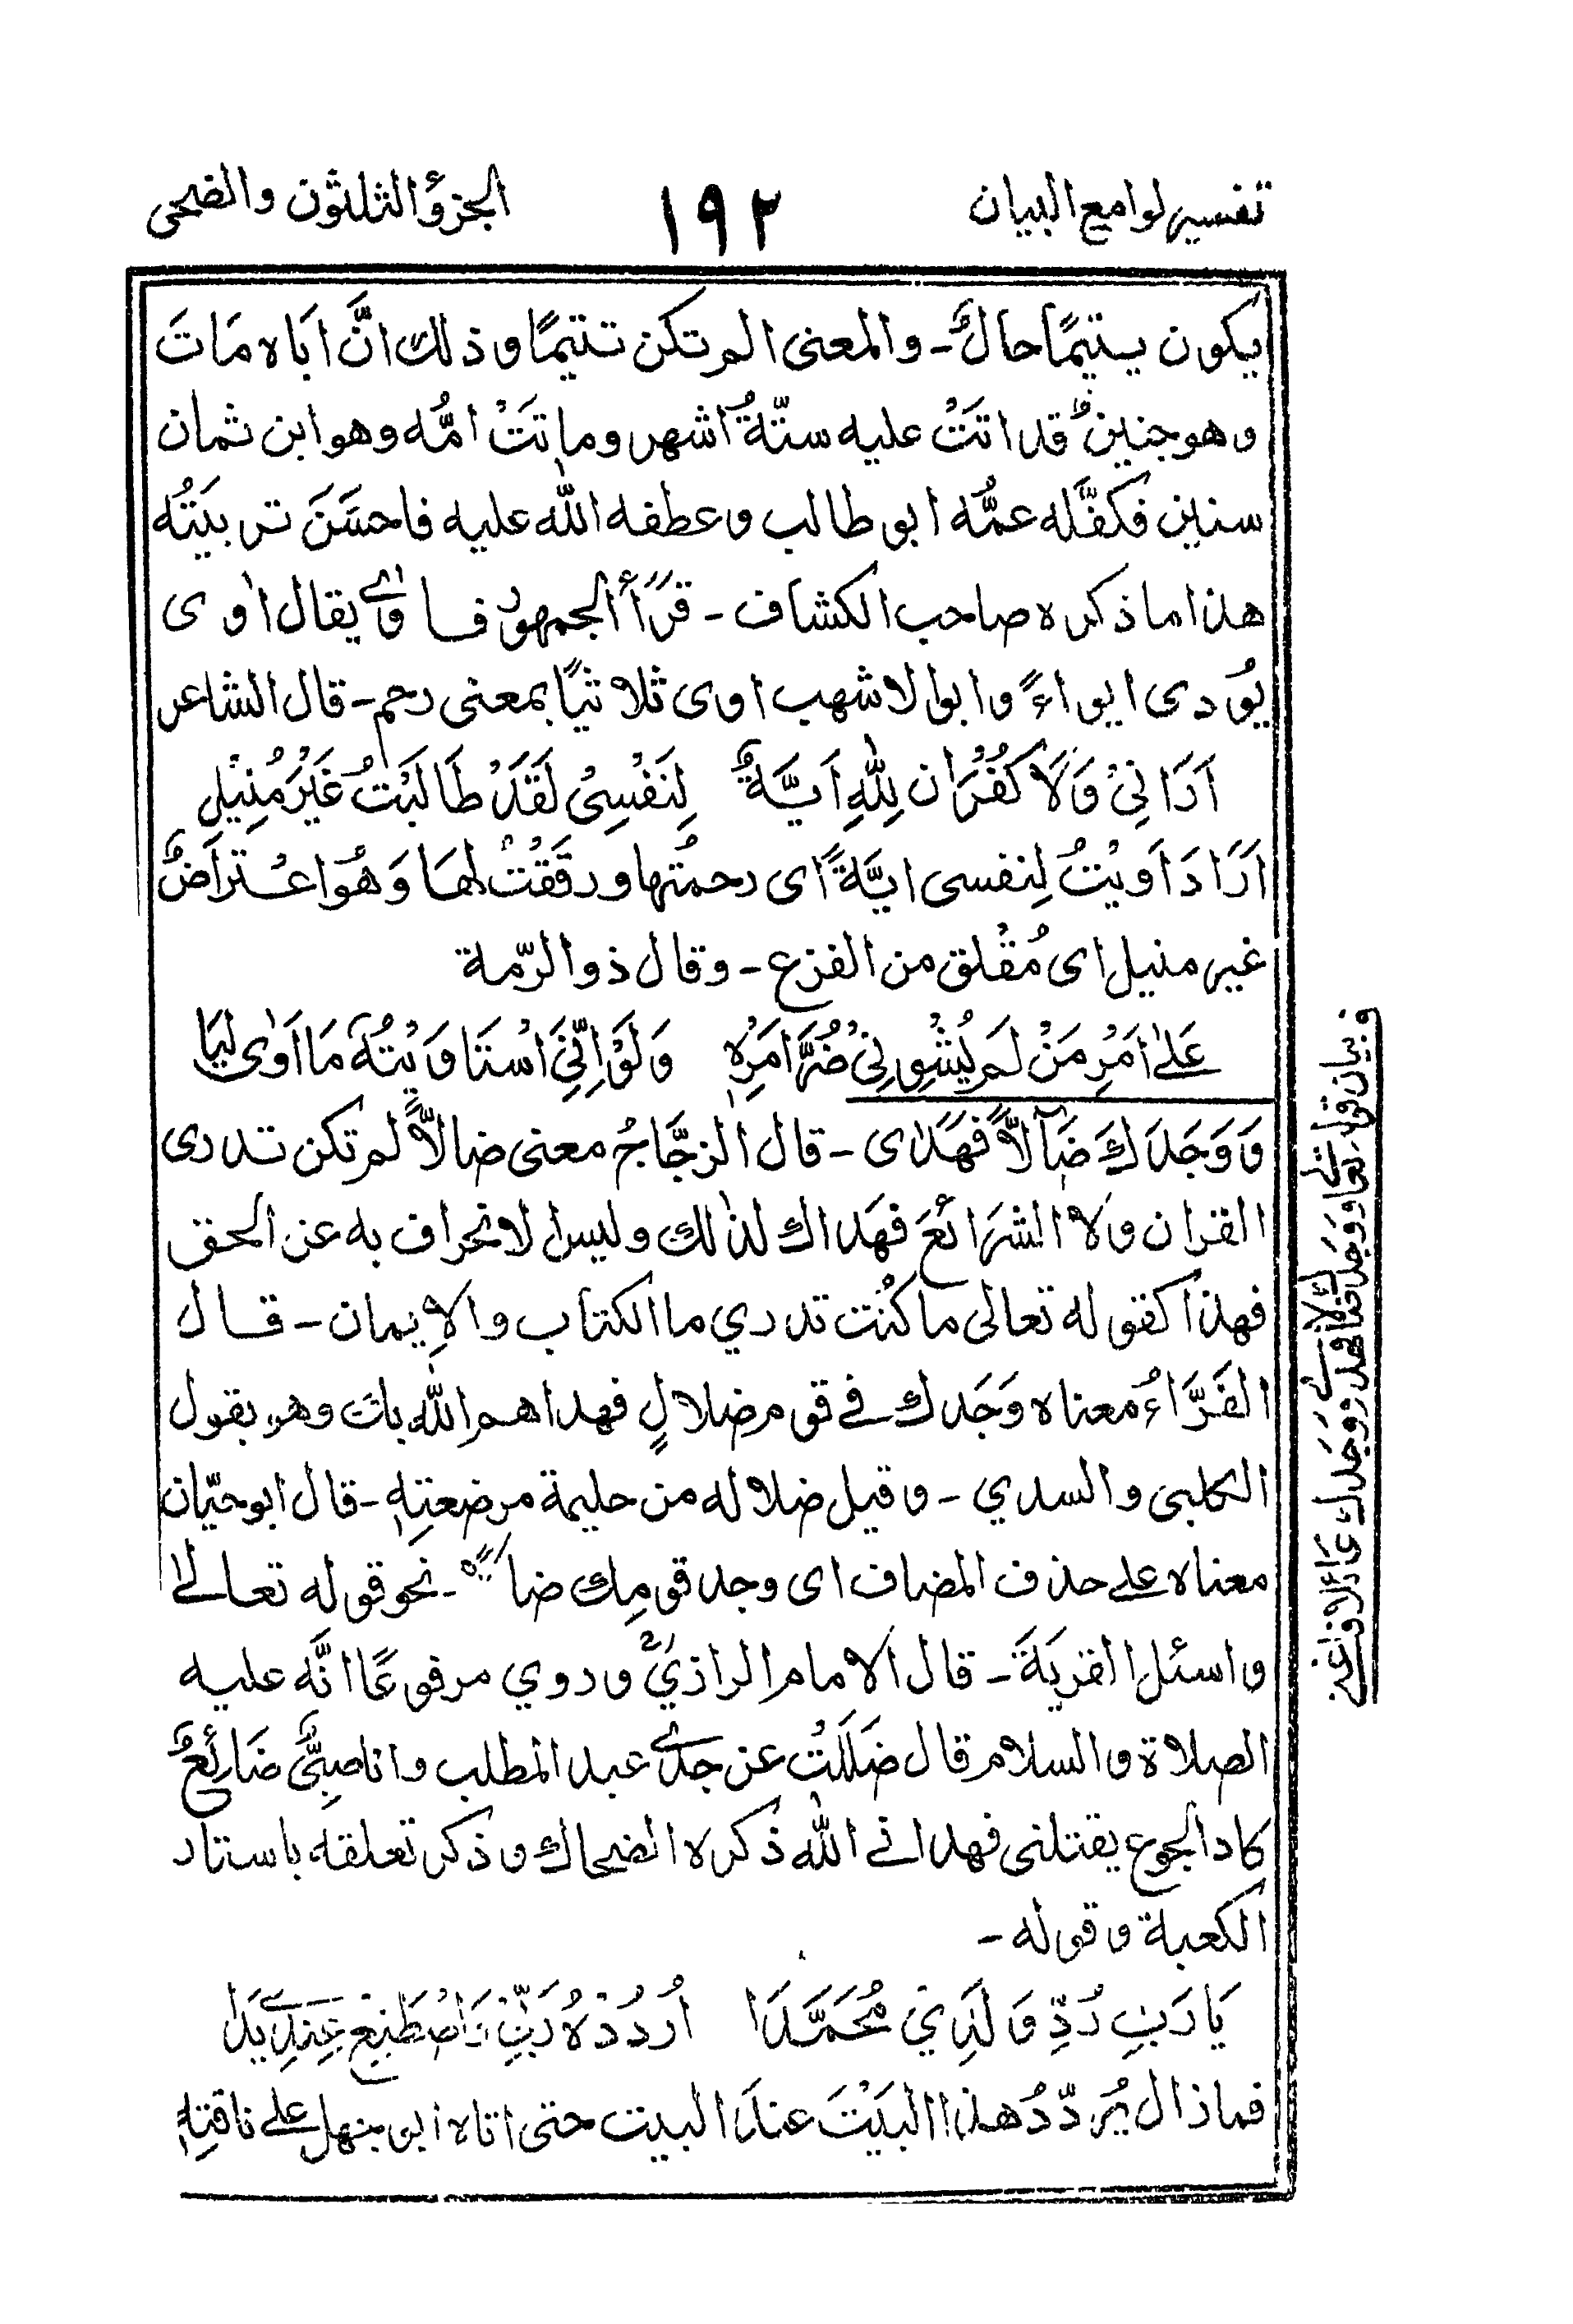 تفسير لوامع البيان
١٩٢
الجزؤ الثلثون والضحى
يكون يتيمًا حالٌ - والمعنى الم تكن تتيمًا وذلك انَّ اباه مَاتَ
وهو جنينٌ قد اتَتْ عليه ستّةُ اشهر وماتَتْ امُّه وهو ابن ثمان
سنين فكفَّله عمُّه ابو طالب وعطفه الله عليه فاحسَنَ تربيَتُه
هذا ما ذكره صاحب الكشاف - قرَأَ الجمهور فاٰوٰى يقال اٰوى
يُودى ايواءً وابوا لاشهب اوى ثلاثيًا بمعنى رحم - قال الشاعر
اَرَانِىْ وَلَا كُفْرَانَ لِلّٰهِ اَيَّةٌ لِنَفْسِىْ لَقَدْ طَالَبْتُ غَيْرَ مُنِيْلِ
اَرَادَ اَوَيْتُ لِنفسى ايَّةً اى رحمتُها ورقَقْتُ لها وَهُوَ اعْتراَضٌ
غير منيل اى مُقْلق من الفزع - وقال ذو الرّمة
عَلىٰ اَمْرِ مَنْ لَمْ يُشْوِنِىْ ضُرُّ اَمْرِهٖ وَلَوْ اِنِّىَ اسْتَاوَيْتُهٗ مَا اَوٰى لِيَا
وَوَجَدَكَ ضَآلاًّ فَهَدٰى - قال الزجَّاجُ معنى ضالاًّ لم تكن تدرى
القران ولا الشرَائعَ فهَداك لذلك وليس لانحراف به عن الحق
فهذا كقوله تعالى ما كُنْت تدري ما الكتاب والاِيمان - قال
الفَرَّاءُ معناه وَجَدك فى قوم ضلالٍ فهداهم الله بك وهو بقول
الكلبى والسدي - وقيل ضلاله من حليمة مرضعتِهٖ - قال ابو حيّان
معناه على حذف المضاف اى وجد قومِك ضالاًّ - نحو قوله تعالىٰ
واسئل القريَةَ - قال الامام الرازىُّ وروي مرفوعًا انَّه عليه
الصلاة والسلام قال ضَلَلْتُ عن جدّى عبد المطلب وانا صبىٌّ ضَائِعٌ
كاد الجوع يقتلنى فهدانى الله ذكره الضحاك وذكر تعلقه باستار
الكعبة وقوله -
يَا رَبِّ رُدِّ وَلَدِيْ مُحَمَّدَا اُرْدُدْهُ رَبِّىْ وَاصْطَنِعْ عِنْدِىْ يَدَا
فماذال يُرَدّدُ هذا البَيْتَ عندَ البيت حتى اتاه ابو جهل على ناقتِهٖ
و بيان قوله تعا ووجدك ضالاًّ فهدى ووجدك عائلا فاغنى